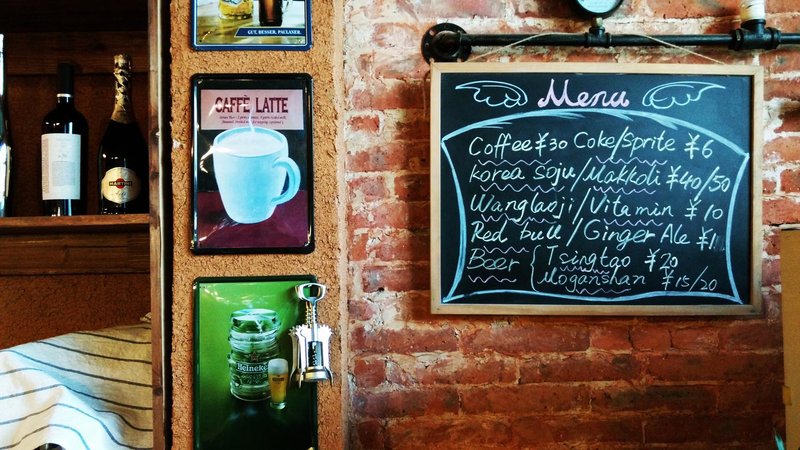 GUT, BESSER, PAULANER.
CAFFÈ LATTE
MARTINI
Heineken
Menu
Coffee ¥30 Coke/Sprite ¥6
Korea Soju/Makkoli ¥40/50
Wanglaoji/Vitamin ¥10
Red bull/Ginger Ale ¥1
Beer { Tsingtao ¥20
Moganshan ¥15/20